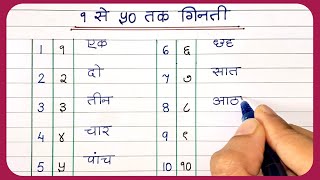 १ से ५० तक गिनती
1 १ एक 6 ६ छह
2 २ दो 7 ७ सात
3 ३ तीन 8 ८ आठ
4 ४ चार 9 ९
5 ५ पांच 10 १०